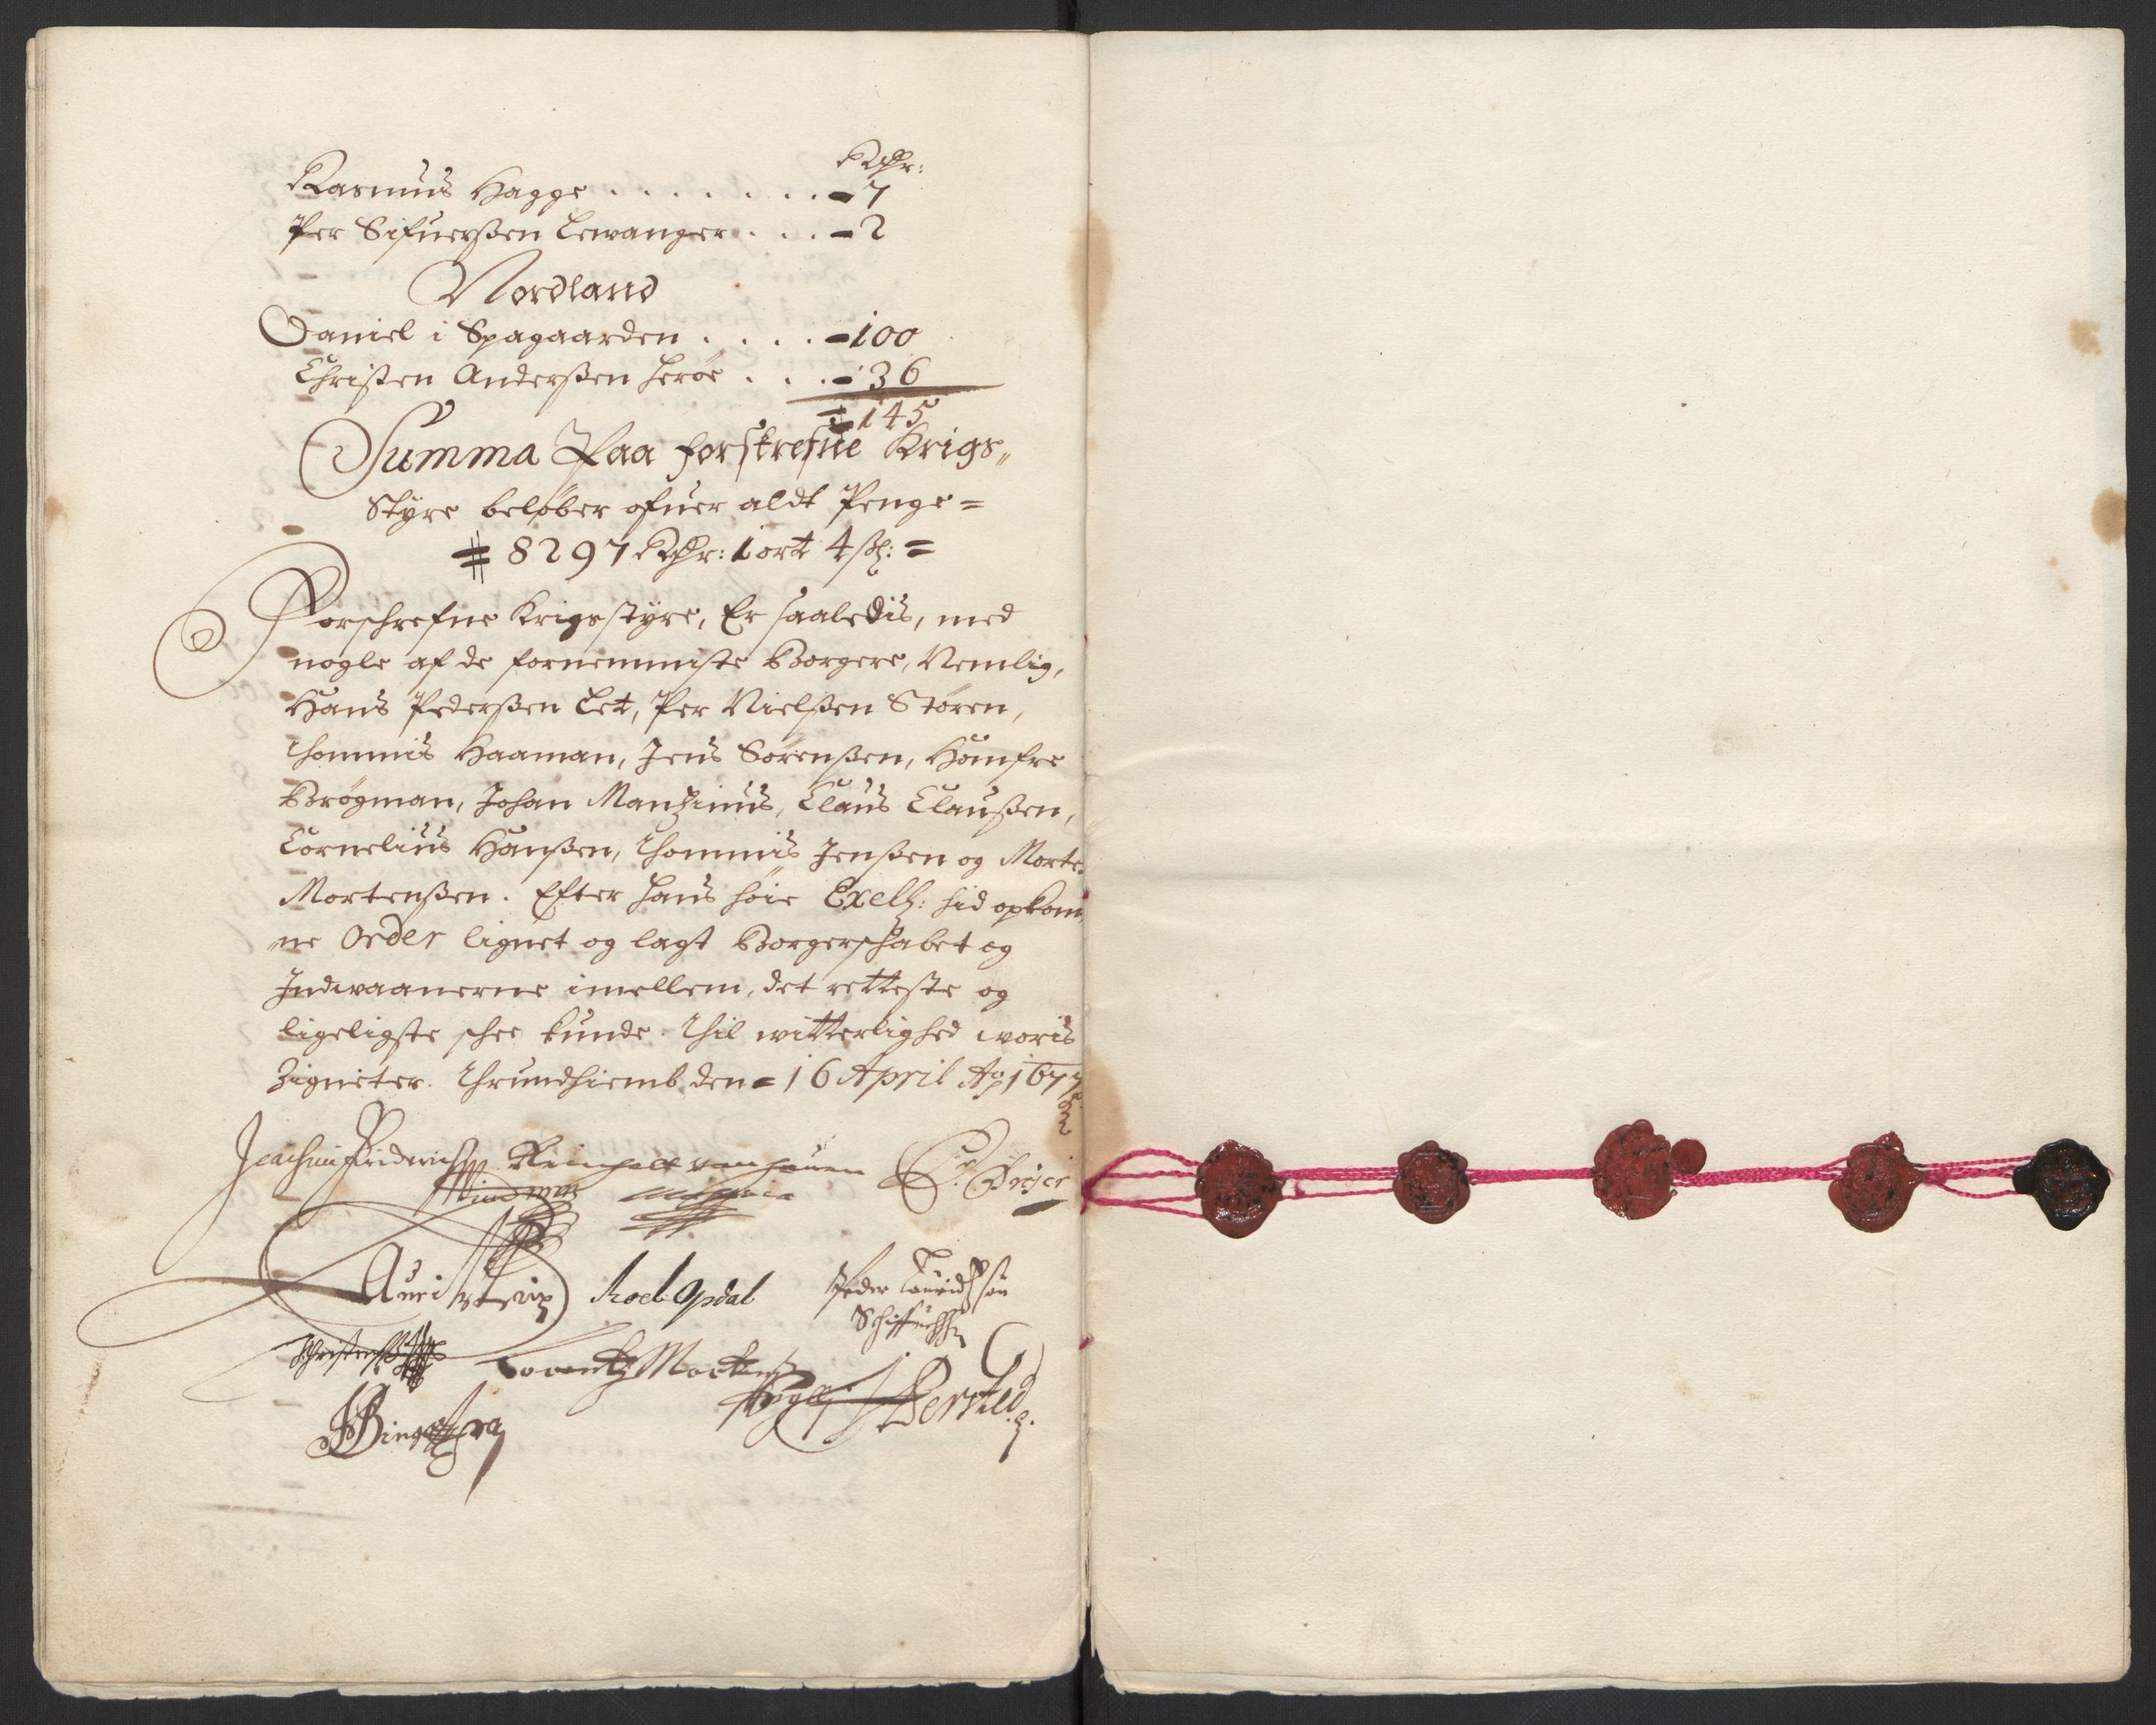 Rdr:
Rasmus Hagge . . . . . . . - 7
Per Sifuerßen Lewanger . . . - 2
Nordland
Daniel i Spagaarden . . . . - 100
Christen Anderßen Herøe . . . - 36
= 145
Summa Paa forskrefne Krigs„
Styre beløber ofuer aldt Penge =
# 8297 Rdr: 1 ort 4 ß: =
Forschrefne Krigsstyre, Er saaledis, med
nogle af de fornemmiste Borgere, Nemlig,
Hans Pederßen Let, Per Nielßen Støren,
Thommis Haaman, Jens Sørenßen, Homfre
Brøgman, Johan Manzinus, Claus Claußen,
Cornelius Hanßen, Thommis Jenßen og Morte
Mortenßen. Efter Hans høie Exell: hid opkom„
ne Order lignet og lagt Borgerschabet og
Indwaanerne imellem, det retteste og
ligeligste schee kunde. Thil witterlighed woris
Zigneter. Thrundhiemb den = 16 April Ao 1677
Joachim Friderich Reinholt von Hauen
Roel Opdal Peder
Lorentz Mortens